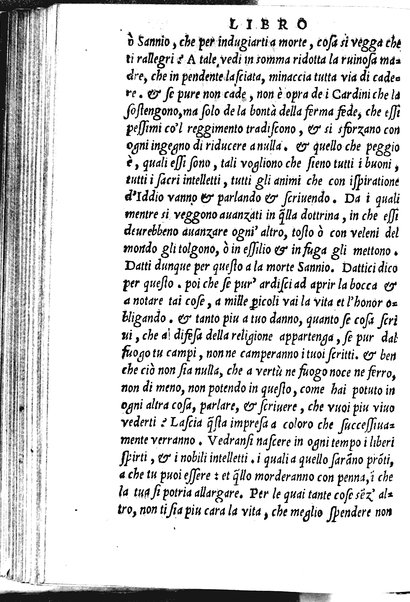 LIBRO
ò Sannio, che per indugiarti a morte, cosa si vegga che
ti rallegri? A tale vedi in somma ridotta la ruinosa ma
dre, che in pendente lasciata, minaccia tutta via di cade-
re. & se pure non cade, non è opra de i Cardini che la
sostengono, ma solo de la bontà della ferma fede, che essi
pessimi co'l reggimento tradiscono, & si sforzano con
ogni ingegno di riducere a nulla. & quello che peggio
è, quali essi sono, tali vogliono che sieno tutti i buoni,
tutti i sacri intelletti, tutti gli animi che con ispiratione
d'Iddio vanno & parlando & scriuendo. Da i quali
mentre si veggono auanzati in q̃lla dottrina, in che essi
deurebbeno auanzare ogni altro, tosto ò con veleni del
mondo gli tolgono, ò in essilio & in fuga gli mettono.
Datti dunque per questo a la morte Sannio. Dattici dico
per questo. poi che se pur' ardisci ad aprir la bocca &
a notare tai cose, a mille picoli vai la vita et l'honor o-
bligando. & tanto piu a tuo danno, quanto se cosa scri
ui, che al difesa della religione appartenga, se pur dal
fuogo tu campi, non ne camperanno i tuoi scritti. & ben
che ciò non sia nulla, che a vertù ne fuogo noce ne ferro,
non di meno, non potendo in questo, come hai potuto in
ogni altra cosa, parlare, & scriuere, che vuoi piu viuo
vederti? Lascia q̃sta impresa a coloro che successiua-
mente verranno. Vedransi nascere in ogni tempo i liberi
spirti, & i nobili intelletti. i quali a quello sarãno prõti,
a che tu puoi essere: et q̃llo morderanno con penna, i che
la tua si potria allargare. Per le quai tante cose sẽz' al-
tro, non ti sia piu cara la vita, che meglio spendere non